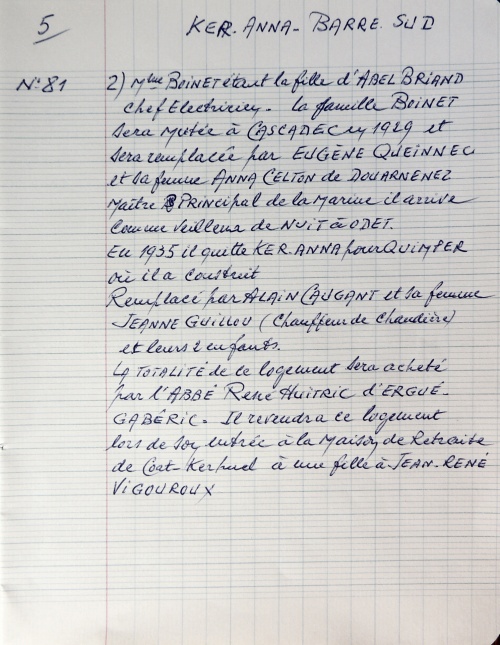 5
KER. ANNA - BARRE. SUD
N° 81
2) Mme BOINET étant la fille d'ABEL BRIAND
chef Electricien - la famille BOINET
sera mutée à CASCADEC en 1929 et
sera remplacée par EUGÈNE QUEINNEC
et sa femme ANNA CELTON de DOUARNENEZ
Maître Principal de la Marine il arrive
Comme Veilleur de NUIT à ODET.
En 1935 il quitte KER. ANNA pour QUIMPER
où il a construit
Remplacé par ALAIN CAUGANT et sa femme
JEANNE GUILLOU (Chauffeur de Chaudière)
et leurs 2 enfants.
LA TOTALITÉ de ce logement sera acheté
par l'ABBÉ René HUITRIC d'ERGUÉ-
GABÉRIC - Il revendra ce logement
lors de son entrée à la Maison de Retraite
de Coat-Kerhuel à une fille à JEAN-RENÉ
VIGOUROUX